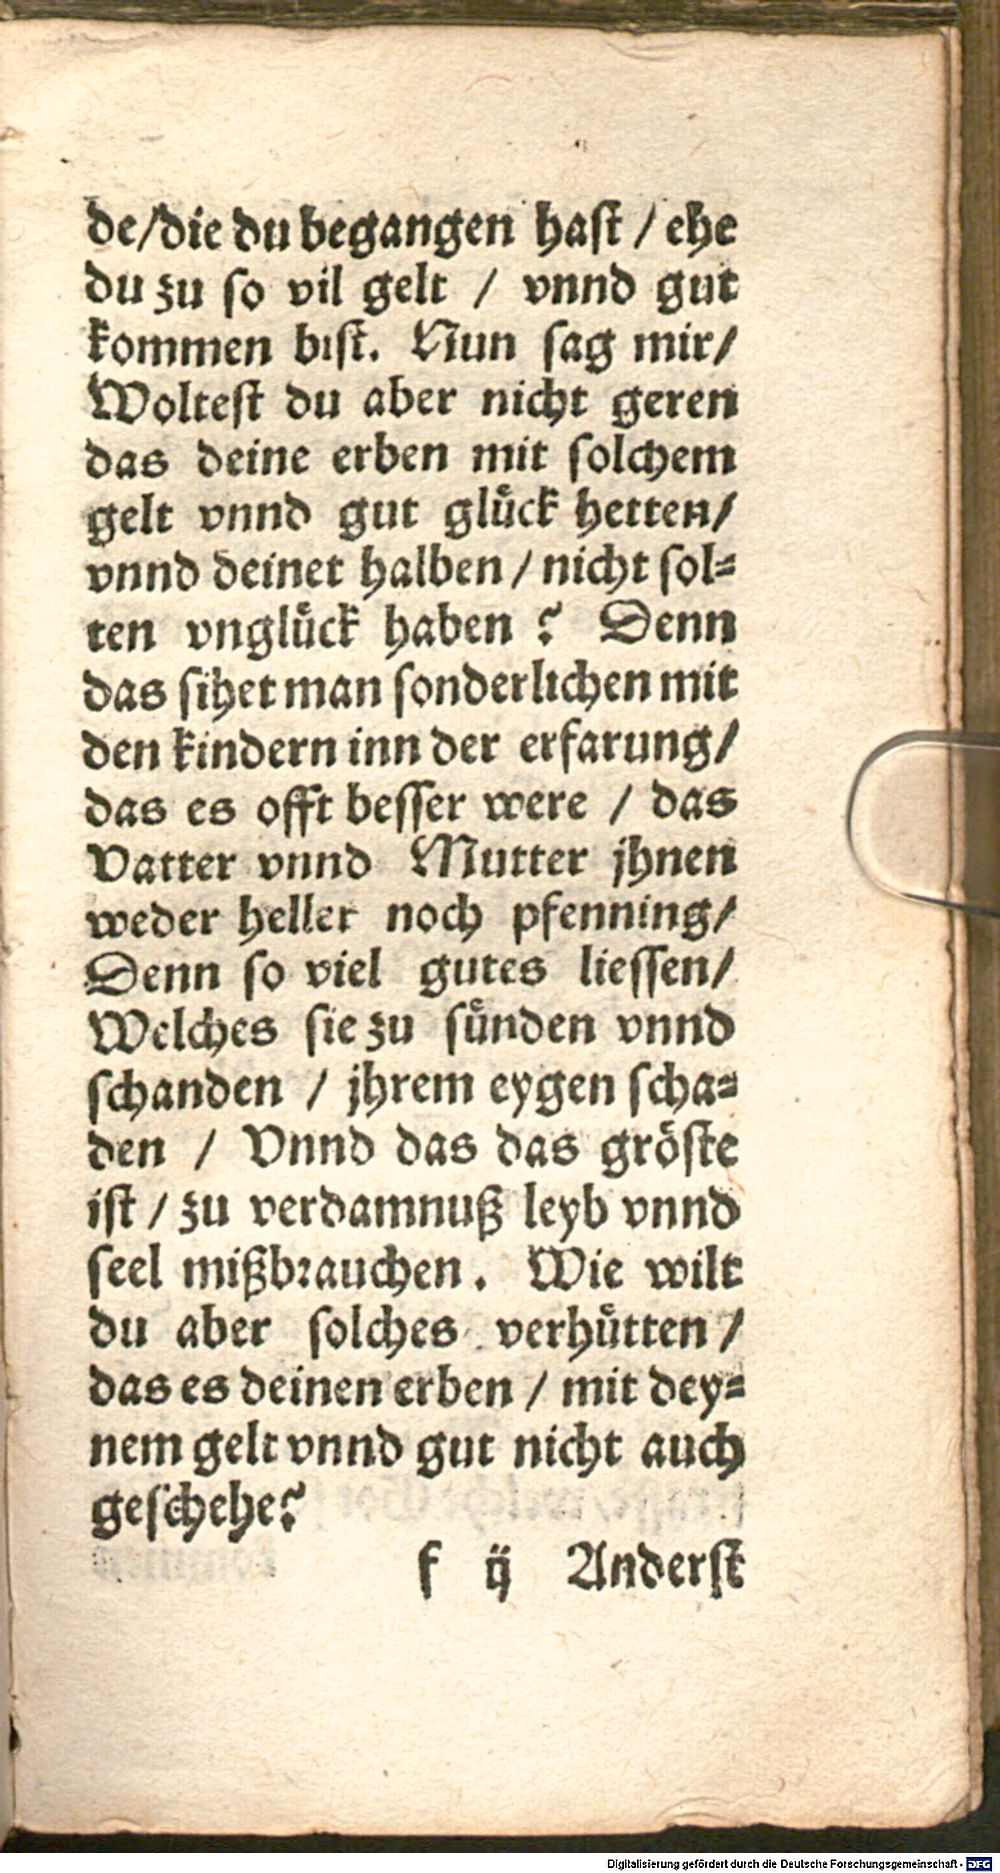 de/die du begangen haſt / ehe
du zu ſo vil gelt / vnnd gut
kommen biſt. Nun ſag mir/
Wolteſt du aber nicht geren
das deine erben mit ſolchem
gelt vnnd gut gluͤck hetten/
vnnd deinet halben / nicht ſol⸗
ten vngluͤck haben ? Denn
das ſihet man ſonderlichen mit
den kindern inn der erfarung/
das es offt beſſer were / das
Vatter vnnd Mutter jhnen
weder heller noch pfenning/
Denn ſo viel gutes lieſſen/
Welches ſie zu ſuͤnden vnnd
ſchanden / jhrem eygen ſcha⸗
den / Vnnd das das groͤſte
iſt / zu verdamnuß leyb vnnd
ſeel mißbꝛauchen. Wie wilt
du aber ſolches verhuͤtten /
das es deinen erben / mit dey⸗
nem gelt vnnd gut nicht auch
geſchehe?
f ij Anderſt
Digitalisierung gefördert durch die Deutsche Forschungsgemeinschaft - DFG